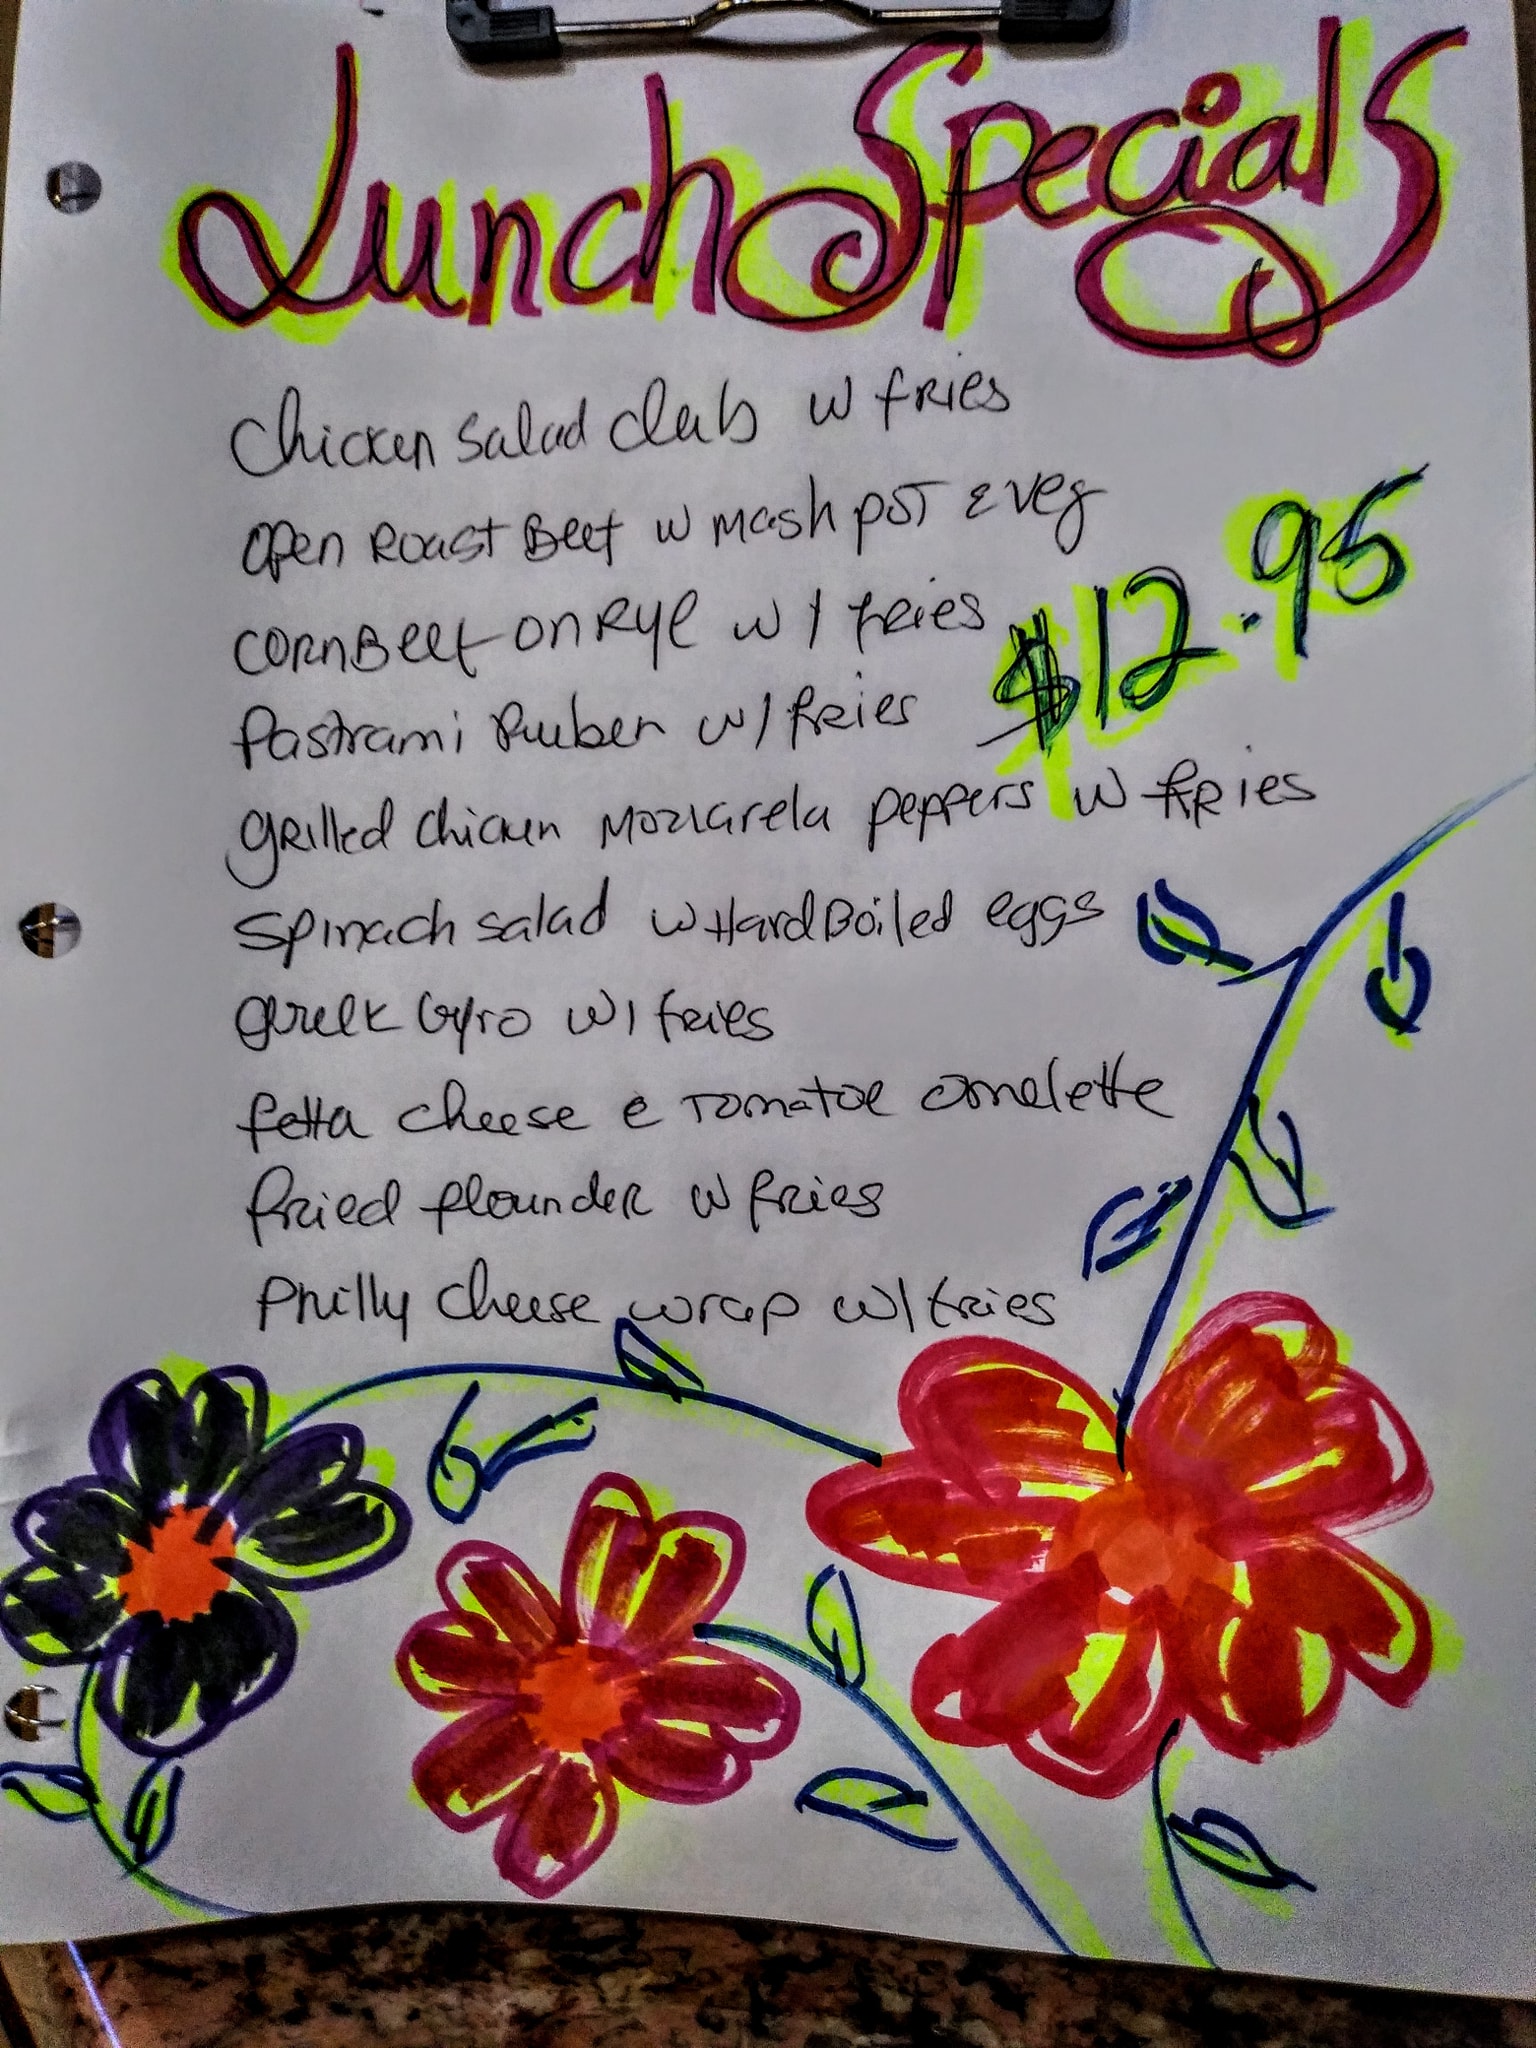 Lunch Specials
Chicken Salad Club w fries
open Roast Beef w mash pot & veg
$12.95
Corn Beef on Rye w/ fries
Pastrami Rueben w/ fries
grilled chicken mozzarela peppers w fries
Spinach salad w Hard Boiled eggs
greek Gyro w/ fries
fetta cheese & Tomatoe omelette
fried flounder w fries
Philly cheese wrap w/ fries